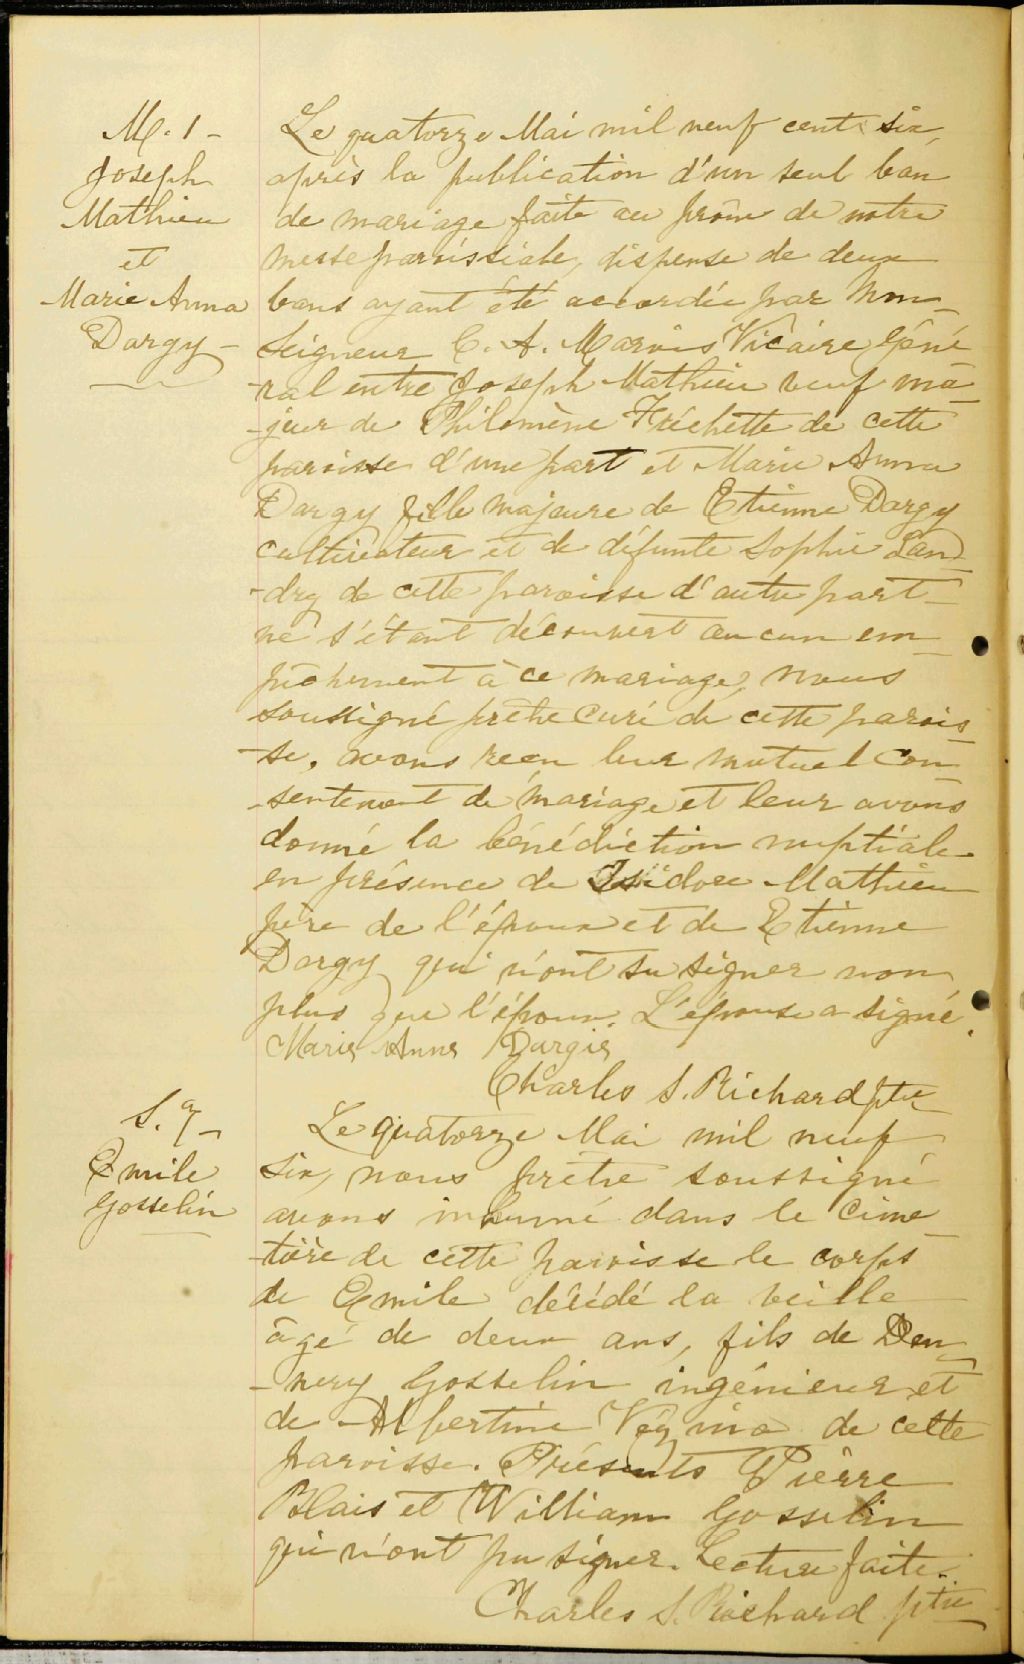 M. 1 -
Joseph
Mathieu
et
Marie Anna
Dargy -
Le quatorze Mai mil neuf cent six,
après la publication d'un seul ban
de mariage faite au prône de notre
messe paroissiale, dispense de deux
bans ayant été accordée par Mon-
seigneur C. A. Marois Vicaire Géné
-ral entre Joseph Mathieu veuf ma-
-jeur de Philomène Fréchette de cette
paroisse d'une part et Marie Anna
Dargy fille majeure de Etienne Dargy
cultivateur et de défunte Sophie Lan-
-dry de cette paroisse d'autre part
ne s'étant découvert aucun em-
pêchement à ce mariage, nous
soussigné prêtre curé de cette parois-
-se, avons reçu leur mutuel con-
-sentement de mariage et leur avons
donné la bénédiction nuptiale
en présence de Isidore Mathieu
père de l'époux et de Etienne
Dargy qui n'ont su signer non
plus que l'époux. L'épouse a signé.
Marie Anne Dargie
Charles S. Richard ptre
S. 7 -
Emile
Gosselin
Le quatorze Mai mil neuf
six, nous prêtre soussigné
avons inhumé dans le cime-
-tière de cette paroisse le corps
de Emile décédé la veille
âgé de deux ans, fils de Den-
-nery Gosselin ingénieur et
de Albertine Vézina de cette
paroisse. Présents Pierre
Blais et William Gosselin
qui n'ont pu signer. Lecture faite.
Charles S. Richard ptre